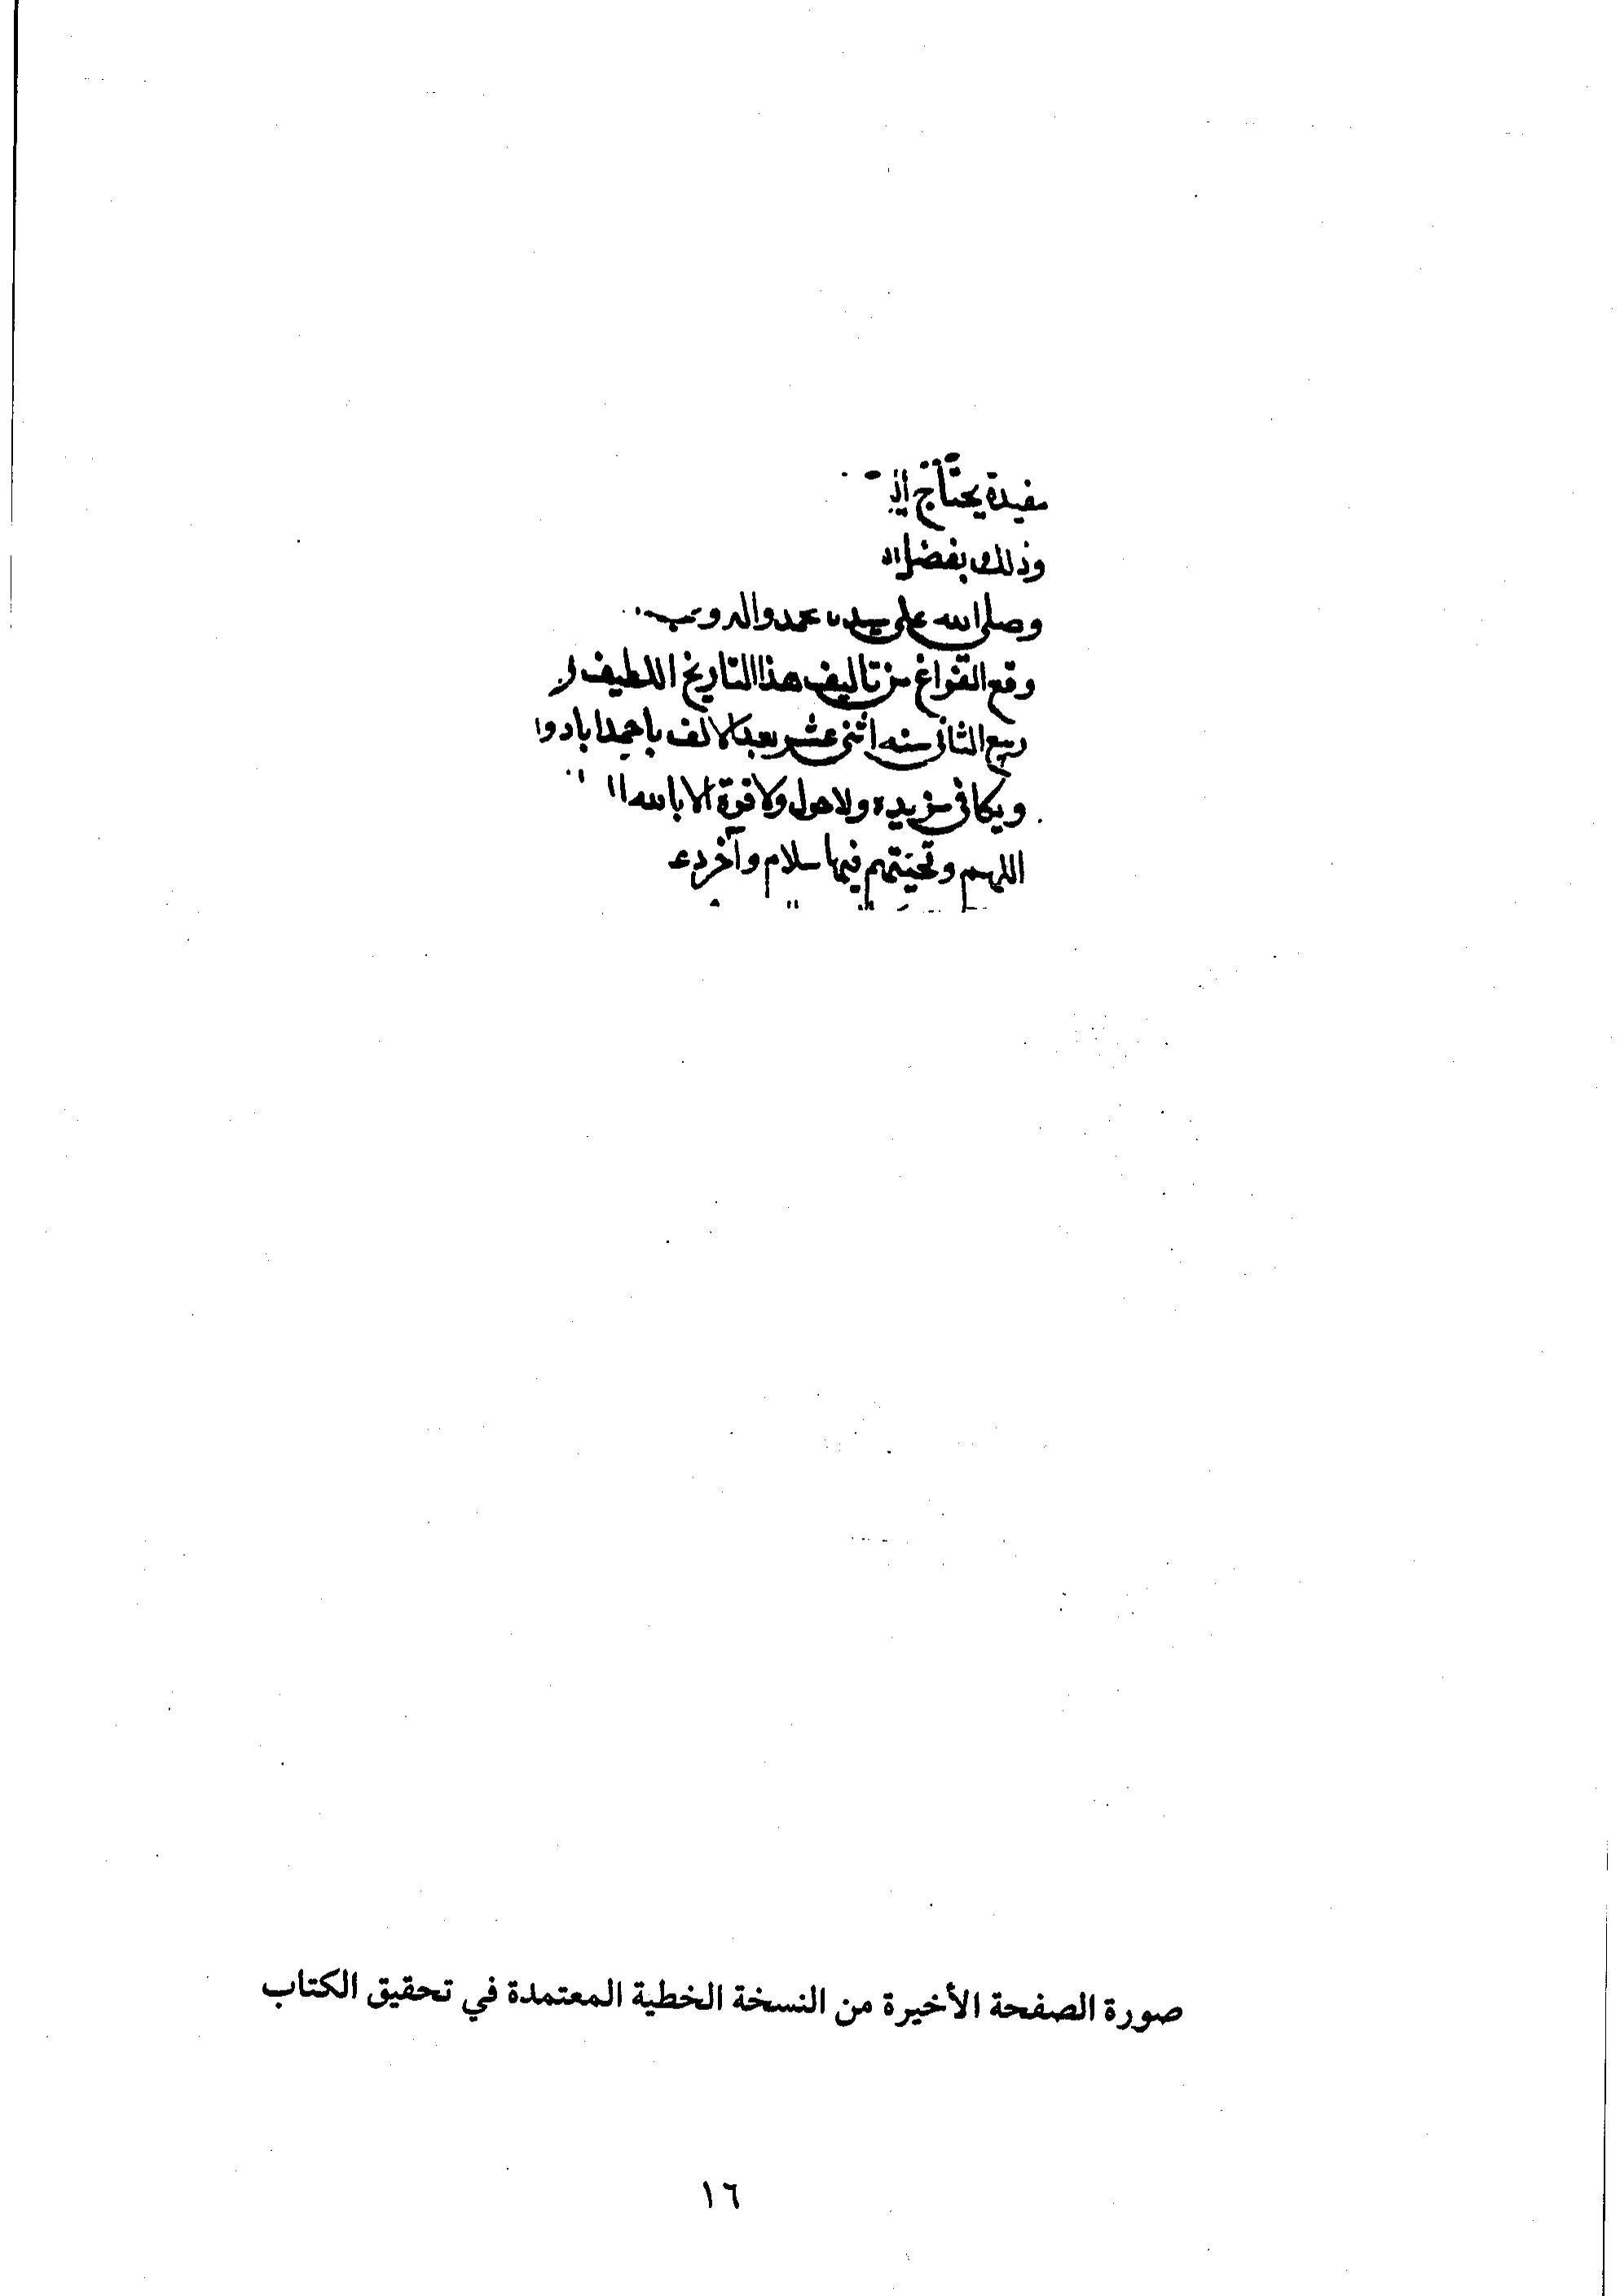 مفيدة يحتاج
وذلك بفضل
وصلى الله على سيدنا محمد واله وصحب
وقع الفراغ من تاليف هذا التاريخ اللطيف
ربيع الثاني سنه اثنى عشر بعد الالف باحمداباد
ويكافى مزيده ولا حول ولا قوة الا بالله
اللهم وتحيتهم فيها سلام وآخر دع
صورة الصفحة الأخيرة من النسخة الخطية المعتمدة في تحقيق الكتاب
١٦